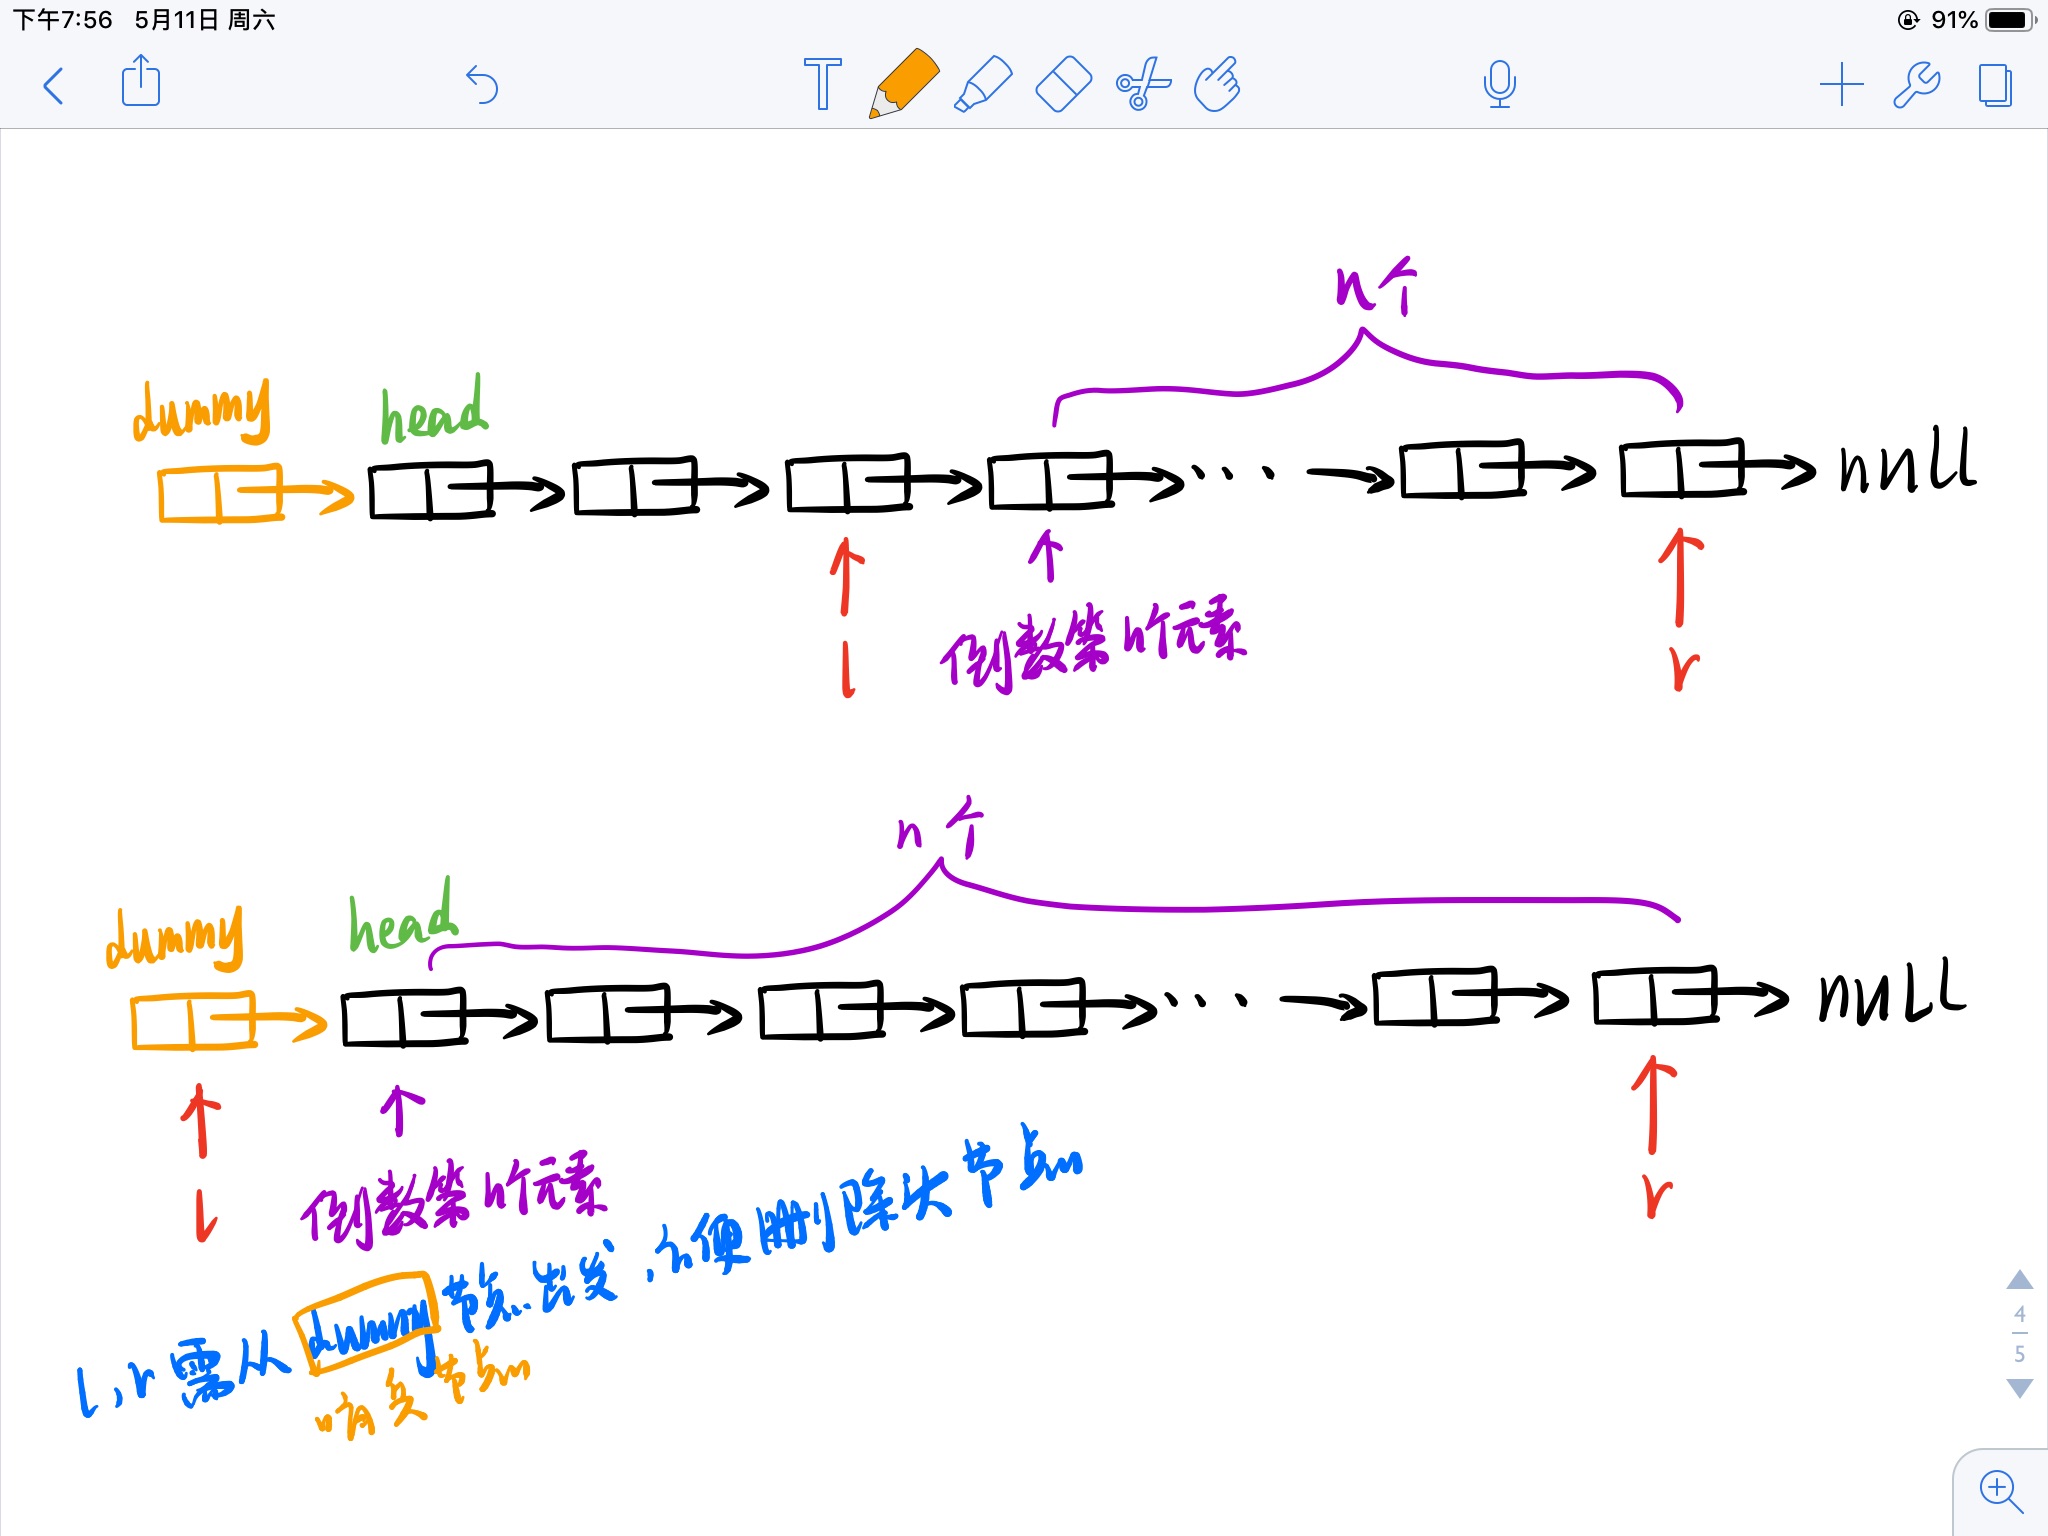 下午7:56 5月11日 周六 91%
T
n个
dummy head
null
倒数第n个元素
l r
n个
dummy head
null
倒数第n个元素
l r
l,r需从dummy节点出发,方便删除头节点
哨兵节点
4
5